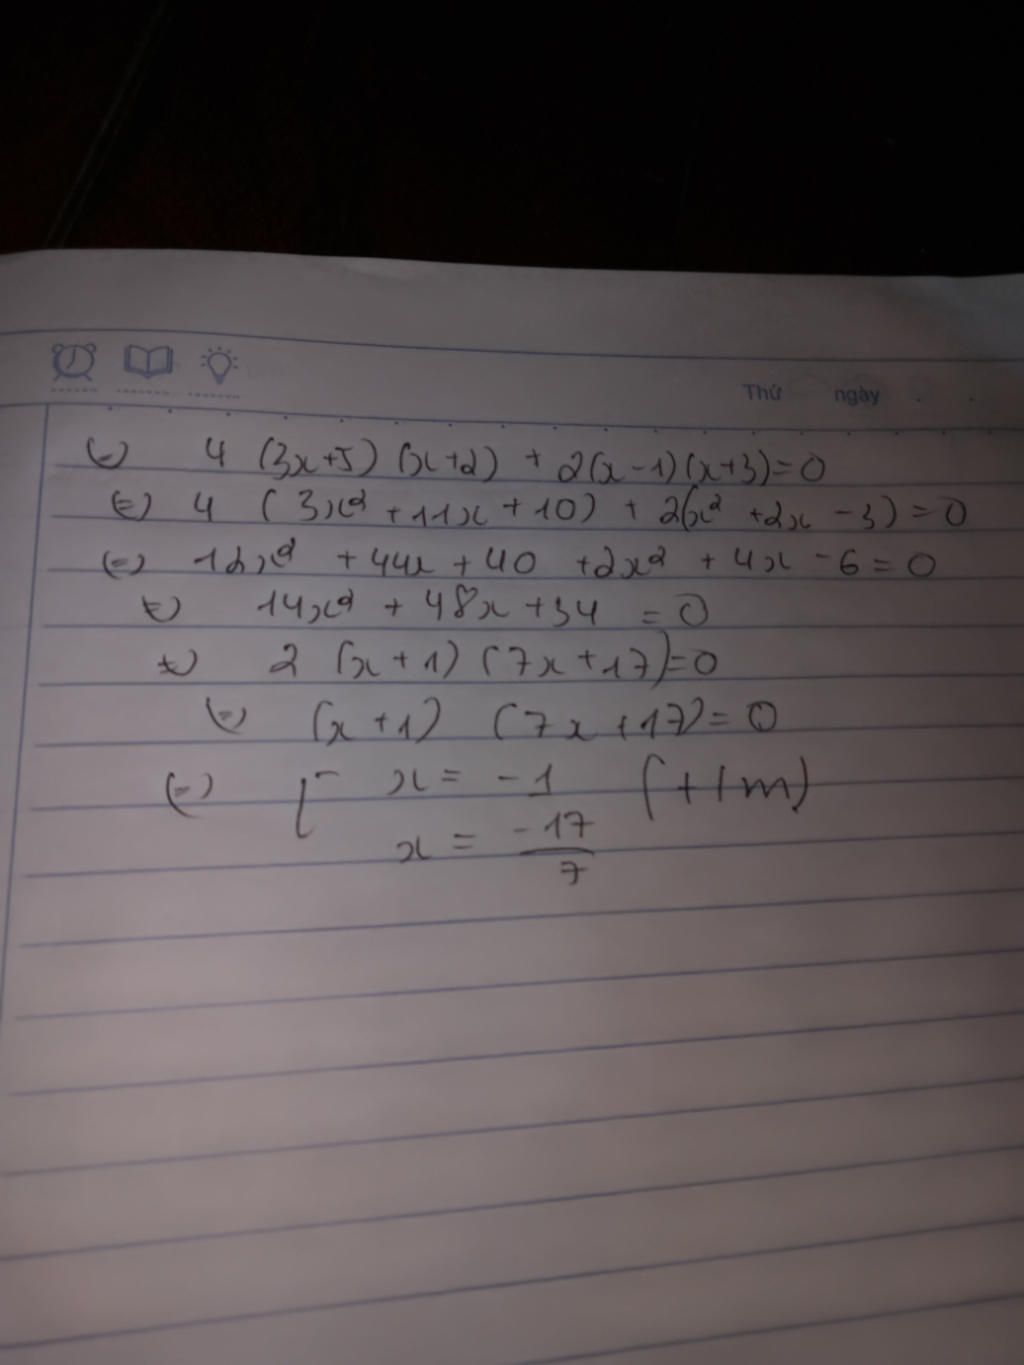 Thứ ngày
(=) 4 (3x+5) (x+2) + 2(x-1)(x+3)=0
(=) 4 (3x² + 11x + 10) + 2(x² + 2x - 3) = 0
(=) 12x² + 44x + 40 + 2x² + 4x - 6 = 0
(=) 14x² + 48x + 34 = 0
(=) 2 (x+1) (7x+17)=0
(=) (x+1) (7x+17)=0
(=) [ x = -1 (t/m)
x = -17/7